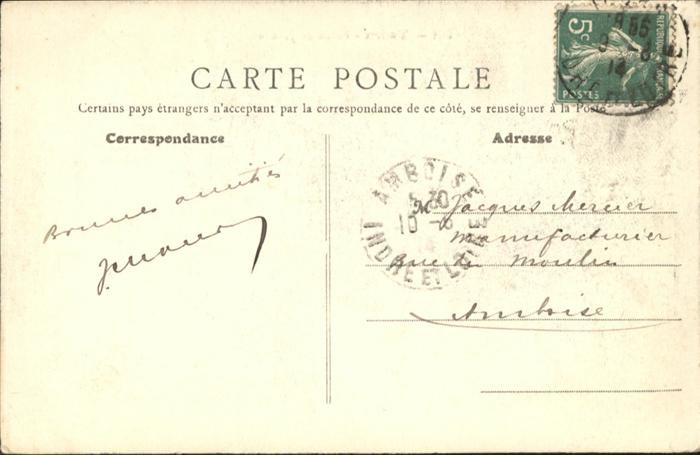 5c
REPUBLIQUE FRANÇAISE
POSTES
CARTE POSTALE
Certains pays étrangers n'acceptant par la correspondance de ce côté, se renseigner à la Poste
Correspondance
Bonnes amitiés
Adresse
AMBOISE
INDRE ET LOIRE
M Jacques Mercier
manufacturier
Rue du Moulin
Amboise